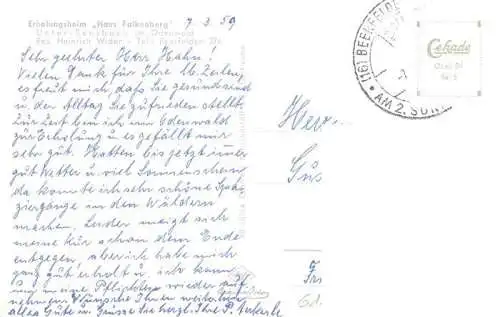 Erholungsheim „Haus Falkenberg"
Unter-Sensbach im Odenwald
Bes. Heinrich Weber - Tel.
7.3.59
Sehr geehrter Herr Hahn!
Vielen Dank für Ihre lb. Zeilen,
es freut mich, daß Sie gesund sind
u. der Alltag Sie zufrieden stellt.
Zur Zeit bin ich im Odenwald
zur Erholung u. es gefällt mir
sehr gut. Hatten bis jetzt immer
gut Wetter u. viel Sonnenschein,
da konnte ich sehr schöne Spa-
ziergänge in den Wäldern
machen. Leider neigt sich
meine Kur schon dem Ende
entgegen, aber ich habe mich
ganz gut erholt u. ich kann
nun meine Pflichten wieder auf-
nehmen. Wünsche Ihnen weiterhin
alles Gute u. Grüsse Sie herzl. Ihre
Herr
Gus
(16) BEERFELDE
AM 2. SON
Cekade